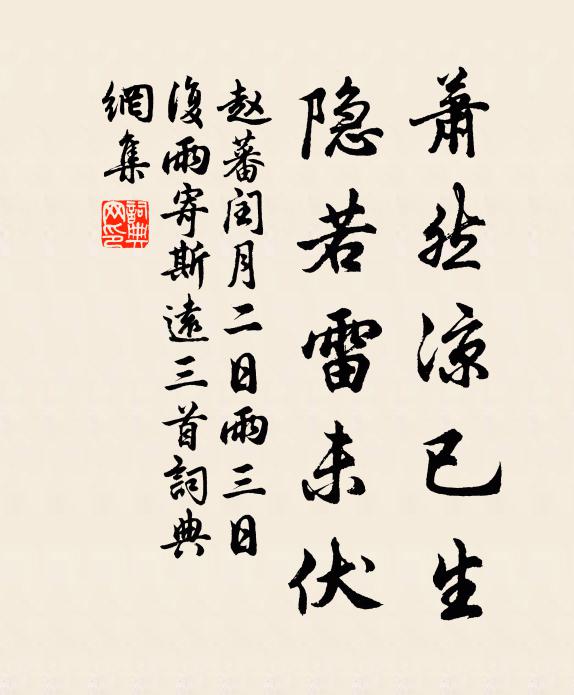 萧然凉已生
隐若雷未伏
赵蕃闰月二日雨三日
復雨寄斯遠三首詞典
網集
詞典網印